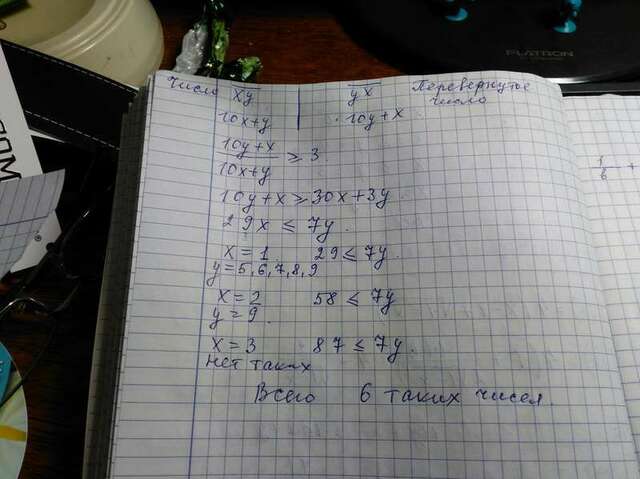 FLATRON
Число xy yx Перевернутое
число
10x+y 10y+x
10y+x
≥ 3
10x+y
10y+x ≥ 30x+3y
29x ≤ 7y
x = 1 29 ≤ 7y
y = 5,6,7,8,9
x = 2 58 ≤ 7y
y = 9
x = 3 87 ≤ 7y
нет таких
Всего 6 таких чисел.
1
6 +